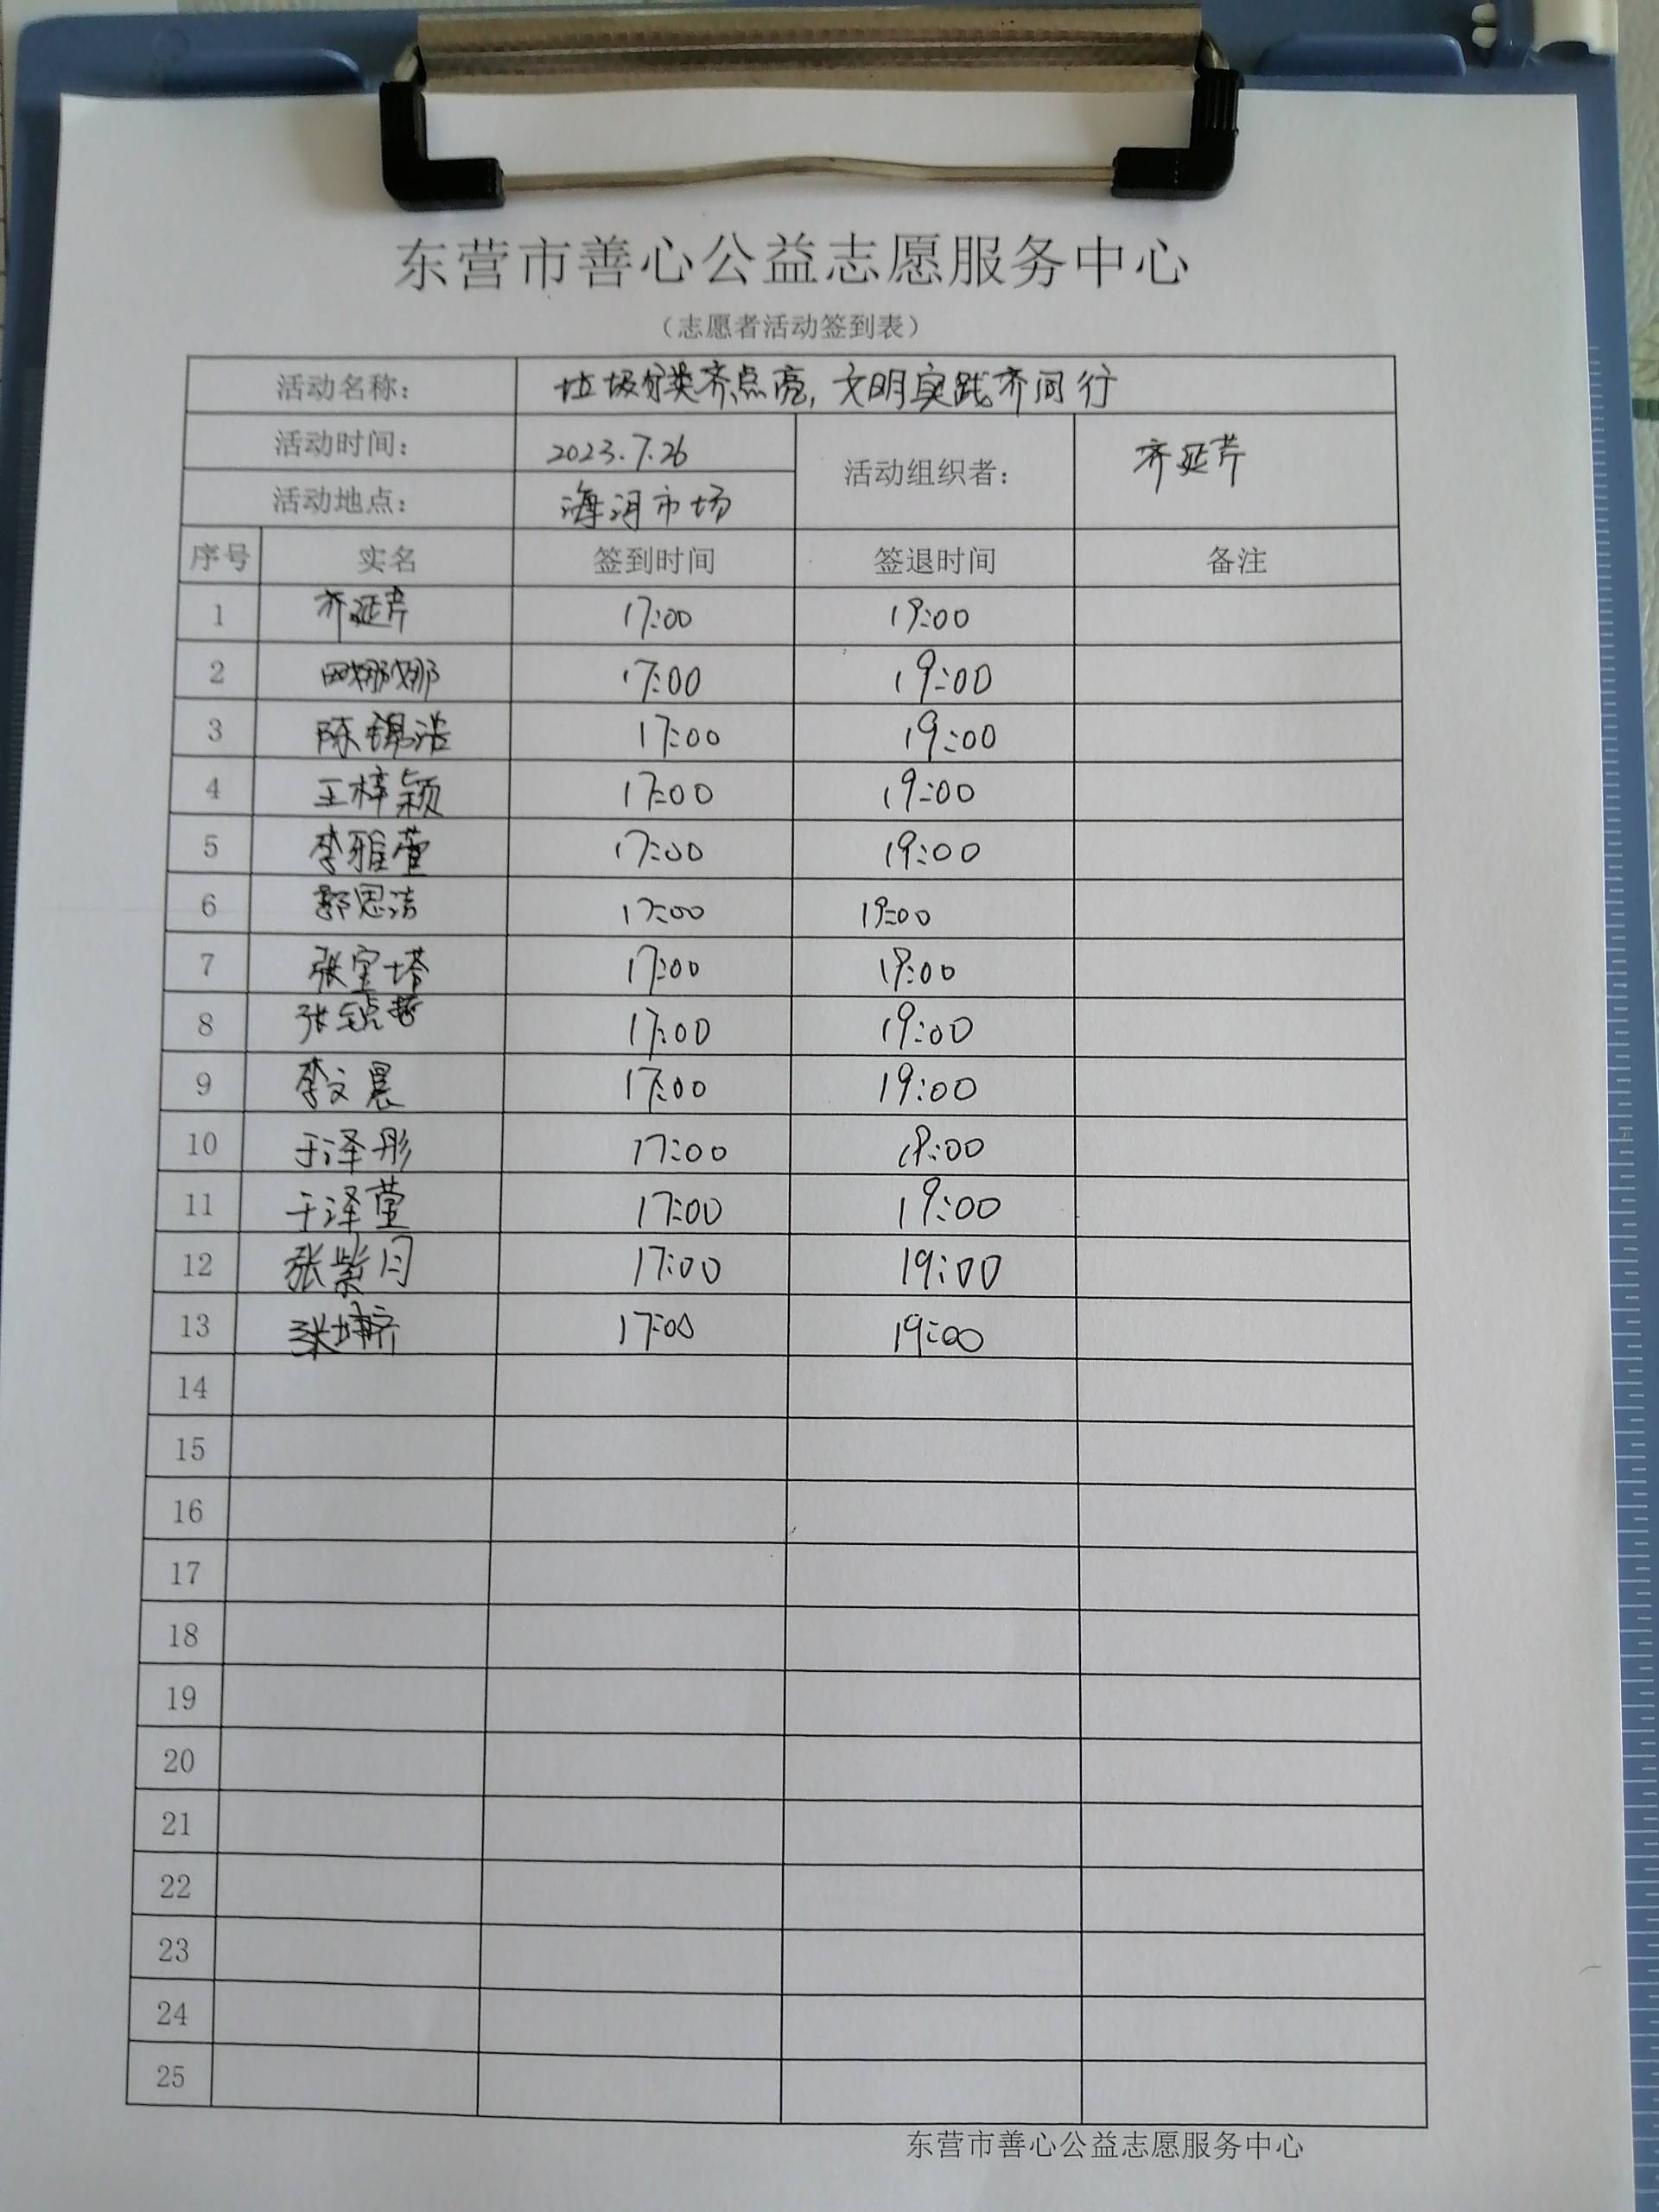 东营市善心公益志愿服务中心
（志愿者活动签到表）
活动名称： 垃圾分类齐点亮，文明实践齐同行
活动时间： 2023.7.26 活动组织者： 齐延芹
活动地点： 海河市场
序号 实名 签到时间 签退时间 备注
1 齐延芹 17:00 19:00
2 田娜娜 17:00 19:00
3 陈锦浩 17:00 19:00
4 王梓颖 17:00 19:00
5 李雅萱 17:00 19:00
6 郭恩洁 17:00 19:00
7 张宝塔 17:00 19:00
8 张 17:00 19:00
9 李文晨 17:00 19:00
10 于泽彤 17:00 19:00
11 于泽萱 17:00 19:00
12 张紫月 17:00 19:00
13 张 17:00 19:00
14
15
16
17
18
19
20
21
22
23
24
25
东营市善心公益志愿服务中心